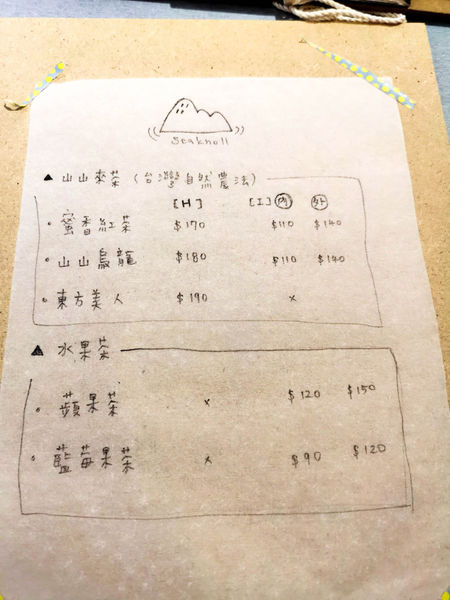 Staknoll
▲ 山山來茶 (台灣自然農法)
[H] [I] 內 外
• 蜜香紅茶 $170 $110 $140
• 山山烏龍 $180 $110 $140
• 東方美人 $190 x
▲ 水果茶
• 蘋果茶 x $120 $150
• 藍莓果茶 x $90 $120